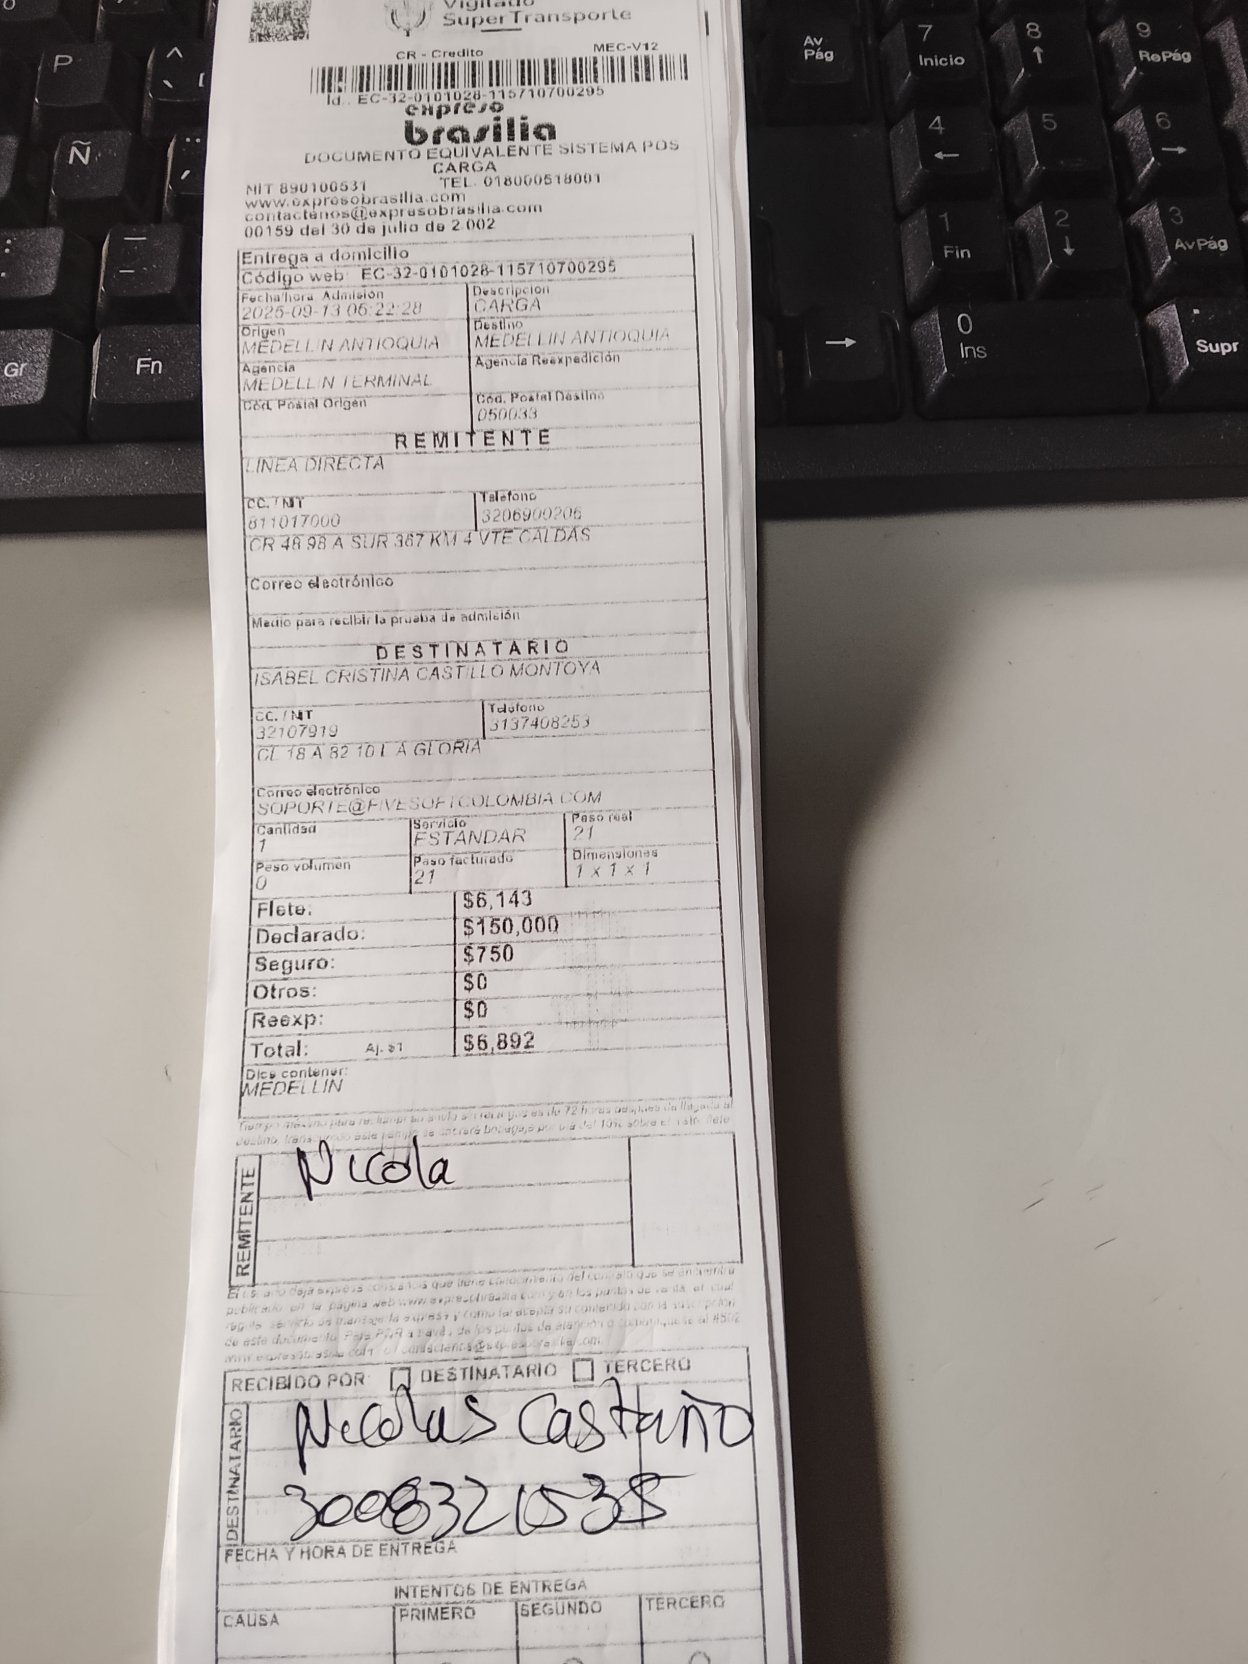 Vigilado
SuperTransporte
CR - Credito MEC-V12
Id.. EC-32-0101028-115710700295
expreso
brasilia
DOCUMENTO EQUIVALENTE SISTEMA POS
CARGA
NIT 890100531 TEL. 018000518001
www.expresobrasilia.com
contactenos@expresobrasilia.com
00159 del 30 de julio de 2.002
Entrega a domicilio
Código web: EC-32-0101028-115710700295
Fecha/hora Admisión Descripcion
2025-09-13 06:22:28 CARGA
Origen Destino
MEDELLIN ANTIOQUIA MEDELLIN ANTIOQUIA
Agencia Agencia Reexpedición
MEDELLIN TERMINAL
Cód. Postal Origen Cód. Postal Destino
050033
REMITENTE
LINEA DIRECTA
CC. / NIT Teléfono
811017000 3206900206
CR 48 98 A SUR 367 KM 4 VTE CALDAS
Correo electrónico
Medio para recibir la prueba de admisión
DESTINATARIO
ISABEL CRISTINA CASTILLO MONTOYA
CC. / NIT Teléfono
32107919 3137408253
CL 18 A 82 10 L A GLORIA
Correo electrónico
SOPORTE@FIVESOFTCOLOMBIA.COM
Cantidad Servicio Peso real
1 ESTANDAR 21
Peso volumen Peso facturado Dimensiones
0 21 1 x 1 x 1
Flete: $6,143
Declarado: $150,000
Seguro: $750
Otros: $0
Reexp: $0
Total: Aj. $1 $6,892
Dice contener:
MEDELLIN
Tiempo máximo para reclamar su envío sin recargos es de 72 horas después de llegada al
destino,
REMITENTE
Nicola
publicado en la página web www.expresobrasilia.com y en los puntos de venta, el cual
RECIBIDO POR: DESTINATARIO TERCERO
DESTINATARIO
Nicolas Castaño
3008321538
FECHA Y HORA DE ENTREGA
INTENTOS DE ENTREGA
CAUSA PRIMERO SEGUNDO TERCERO
P
Ñ
Gr
Fn
Av
Pág
7
Inicio
8
↑
9
RePág
4
←
5
6
→
1
Fin
2
↓
3
AvPág
→
0
Ins
Supr